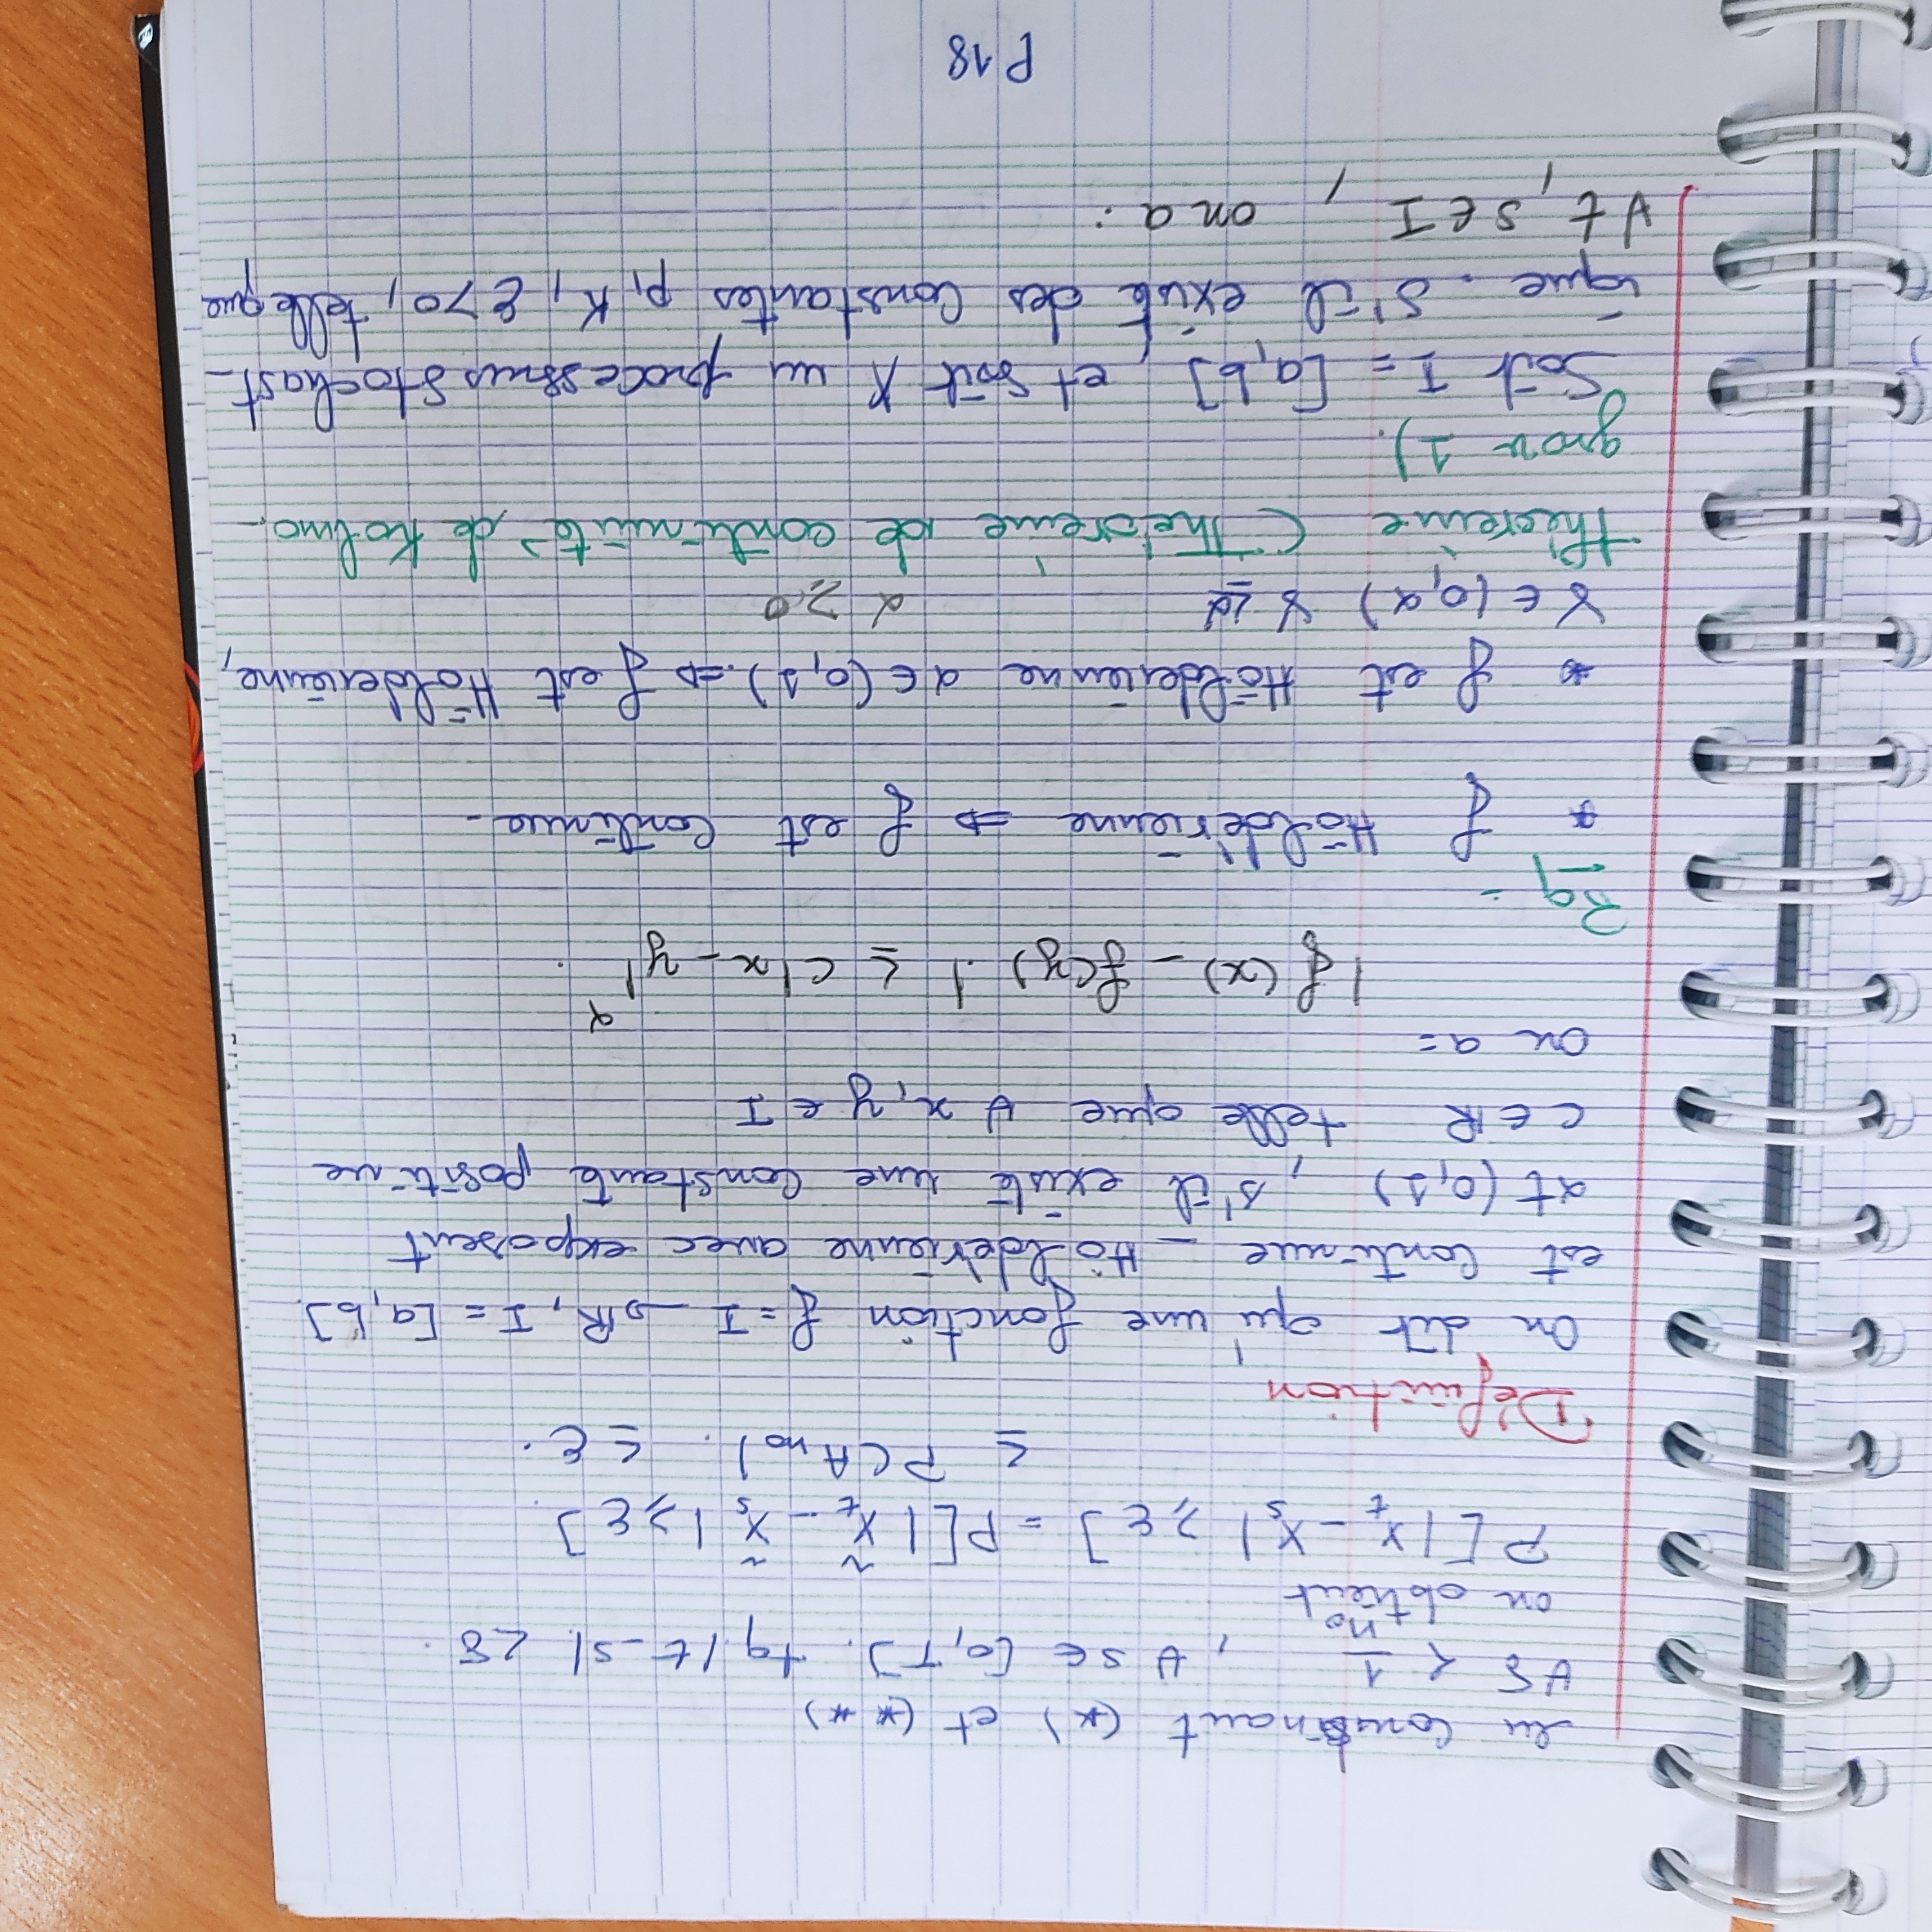 en combinant (*) et (**)
∀δ < 1/n₀ , ∀ s ∈ [0,T]. tq |t - s|. < δ.
on obtient
P[|X_t - X_s| ⩾ ε] = P[|X̃_t - X̃_s| ⩾ ε].
≤ P(A_{n₀}). ≤ ε.
Définition
On dit qu'une fonction f = I → ℝ, I = [a,b].
est continue - Höldérienne avec exposent
αt (0,1) , s'il existe une constante positive
c ∈ ℝ telle que ∀ x, y ∈ I
on a =
|f(x) - f(y).| ≤ c|x - y|^α.
Rq -
* f Höldérienne ⇒ f est continue -
* f est Hölderienne α ∈ (0,1). ⇒ f est Hölderienne,
γ ∈ (0,α) γ ≤ α α ⩾ 0
théoreme (Théoreme de continuité de Kolmo-
grov 1).
Soit I = [a,b], et soit X un processus stochast-
ique. S'il existe des constantes p, K, ε > 0, telle que
∀ t, s ∈ I , on a :
P 18